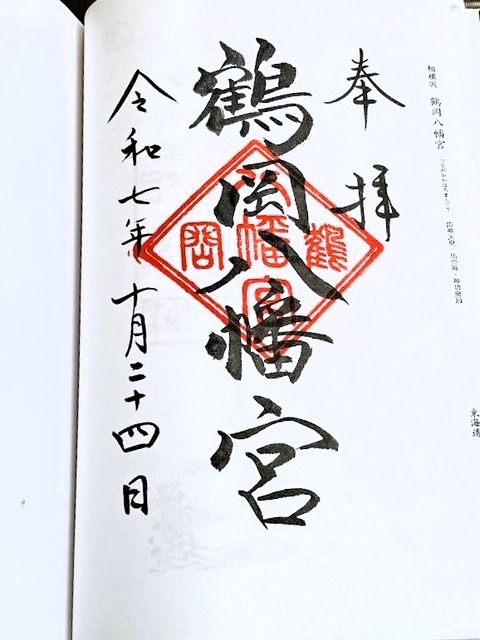 相模国 鶴岡八幡宮 つるがおかはちまんぐう 応神天皇・比売神・神功皇后
東海道
奉拝
鶴岡八幡宮
鶴岡八幡宮
令和七年十月二十四日